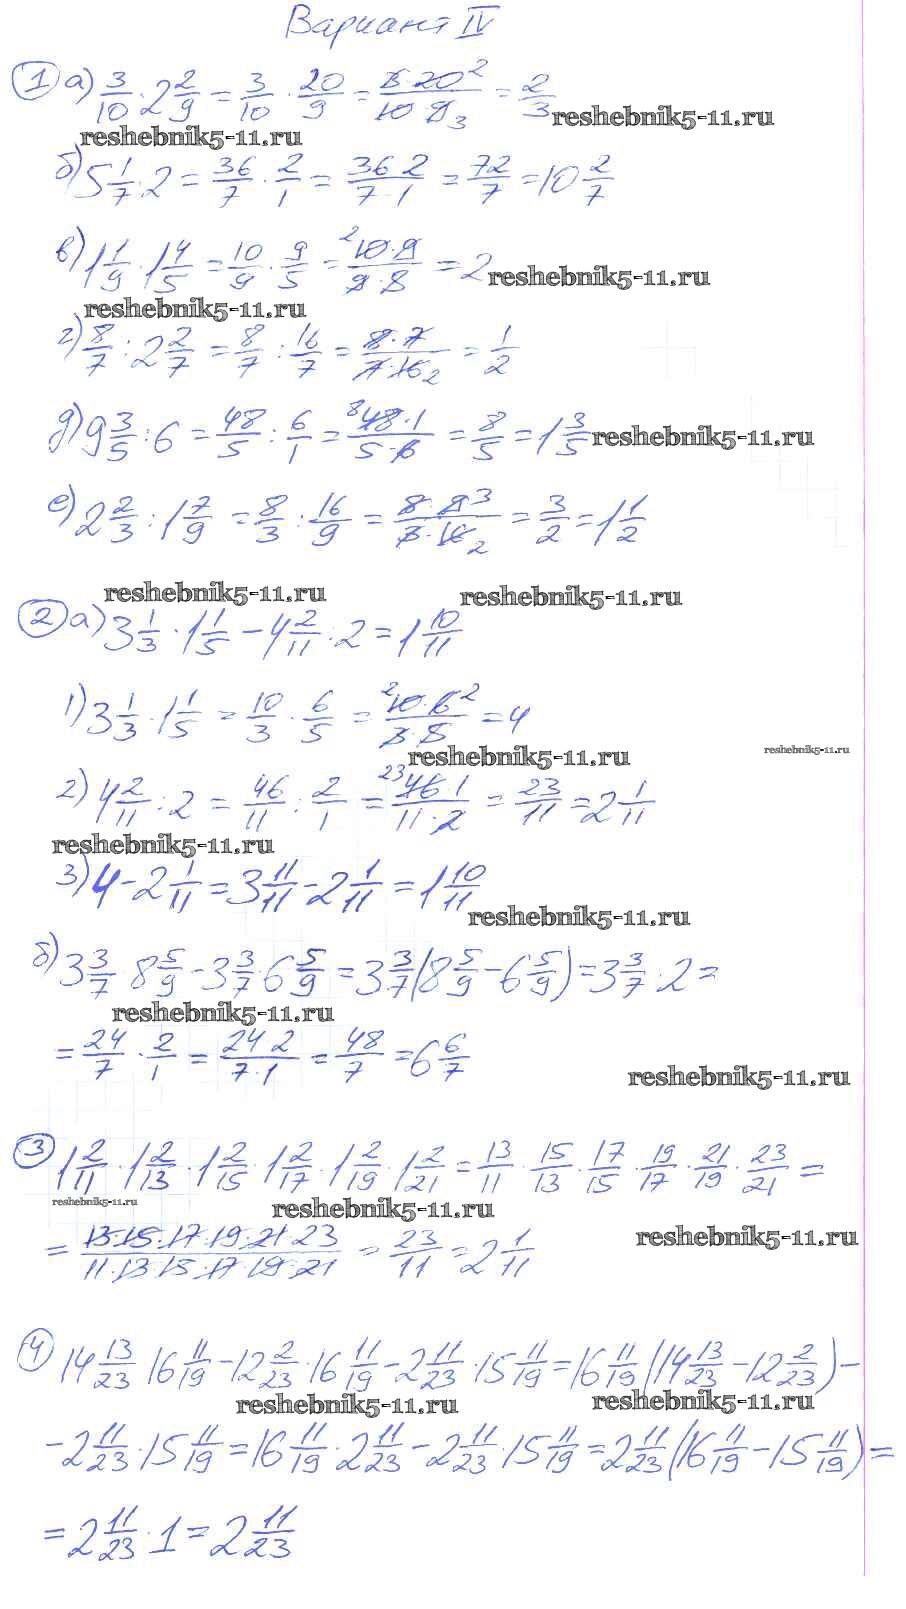 Вариант IV
1 а) 3/10 · 2 2/9 = 3/10 · 20/9 = 3·20 2/10·9 3 = 2/3
reshebnik5-11.ru
reshebnik5-11.ru
б) 5 1/7 · 2 = 36/7 · 2/1 = 36 2/7·1 = 72/7 = 10 2/7
в) 1 1/9 · 1 4/5 = 10/9 · 9/5 = 2 10·9/9·5 = 2
reshebnik5-11.ru
reshebnik5-11.ru
г) 8/7 : 2 2/7 = 8/7 : 16/7 = 8·7/7·16 2 = 1/2
д) 9 3/5 : 6 = 48/5 : 6/1 = 8 48·1/5·6 = 8/5 = 1 3/5
reshebnik5-11.ru
е) 2 2/3 : 1 7/9 = 8/3 : 16/9 = 8·9 3/3·16 2 = 3/2 = 1 1/2
reshebnik5-11.ru
reshebnik5-11.ru
2 а) 3 1/3 · 1 1/5 − 4 2/11 : 2 = 1 10/11
1) 3 1/3 · 1 1/5 = 10/3 · 6/5 = 2 10·6 2/3·5 = 4
reshebnik5-11.ru
reshebnik5-11.ru
2) 4 2/11 : 2 = 46/11 : 2/1 = 23 46·1/11·2 = 23/11 = 2 1/11
reshebnik5-11.ru
3) 4 − 2 1/11 = 3 11/11 − 2 1/11 = 1 10/11
reshebnik5-11.ru
б) 3 3/7 8 5/9 − 3 3/7 · 6 5/9 = 3 3/7 (8 5/9 − 6 5/9) = 3 3/7 · 2 =
reshebnik5-11.ru
= 24/7 · 2/1 = 24 2/7·1 = 48/7 = 6 6/7
reshebnik5-11.ru
3 1 2/11 · 1 2/13 · 1 2/15 · 1 2/17 · 1 2/19 · 1 2/21 = 13/11 · 15/13 · 17/15 · 19/17 · 21/19 · 23/21 =
reshebnik5-11.ru
reshebnik5-11.ru
reshebnik5-11.ru
= 13·15·17·19·21·23/11·13·15·17·19·21 = 23/11 = 2 1/11
4 14 13/23 16 11/19 − 12 2/23 · 16 11/19 − 2 11/23 · 15 11/19 = 16 11/19 (14 13/23 − 12 2/23) −
reshebnik5-11.ru
reshebnik5-11.ru
− 2 11/23 · 15 11/19 = 16 11/19 · 2 11/23 − 2 11/23 · 15 11/19 = 2 11/23 (16 11/19 − 15 11/19) =
= 2 11/23 · 1 = 2 11/23